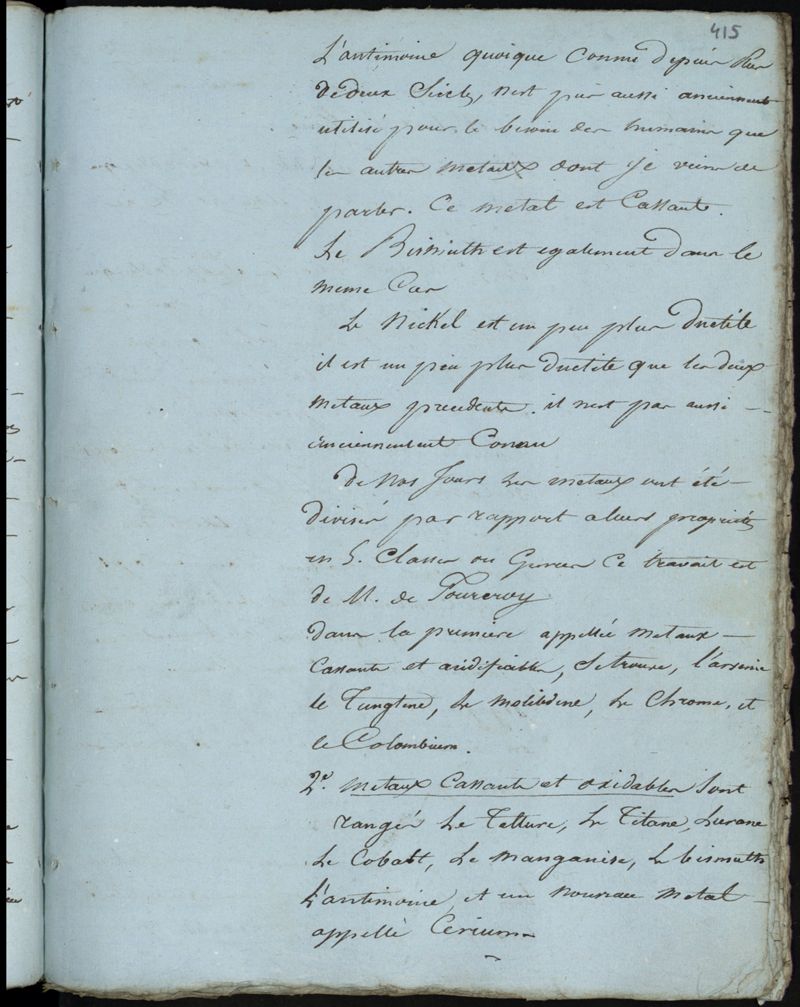 415
L'antimoine quoique Connu depuis Plus
de deux Siecles, n'est pas aussi anciennement
utilisé pour le besoin des humains que
les autres metaux dont je viens de
parler. Ce metal est Cassant.
Le Bismuth est egalement dans le
meme Cas
Le Nickel est un peu plus Ductile
il est un peu plus ductile que les deux
metaux precedents. il n'est pas aussi
anciennement Connu
De nos Jours les metaux ont été
divisés par rapport a leurs proprietés
en 5. Classes ou Genres Ce travail est
de M. de Fourcroy
dans la premiere appellée metaux
Cassants et acidifiables, se trouve, l'arsenic
le Tungtene, Le Molibdene, Le Chrome, et
le Colombium.
2e. metaux Cassants et oxidables Sont
rangés Le Tellure, Le Titane, Lurane
Le Cobalt, Le Manganèse, Le bismuth
L'antimoine, et un nouveau metal
appellé Cerium